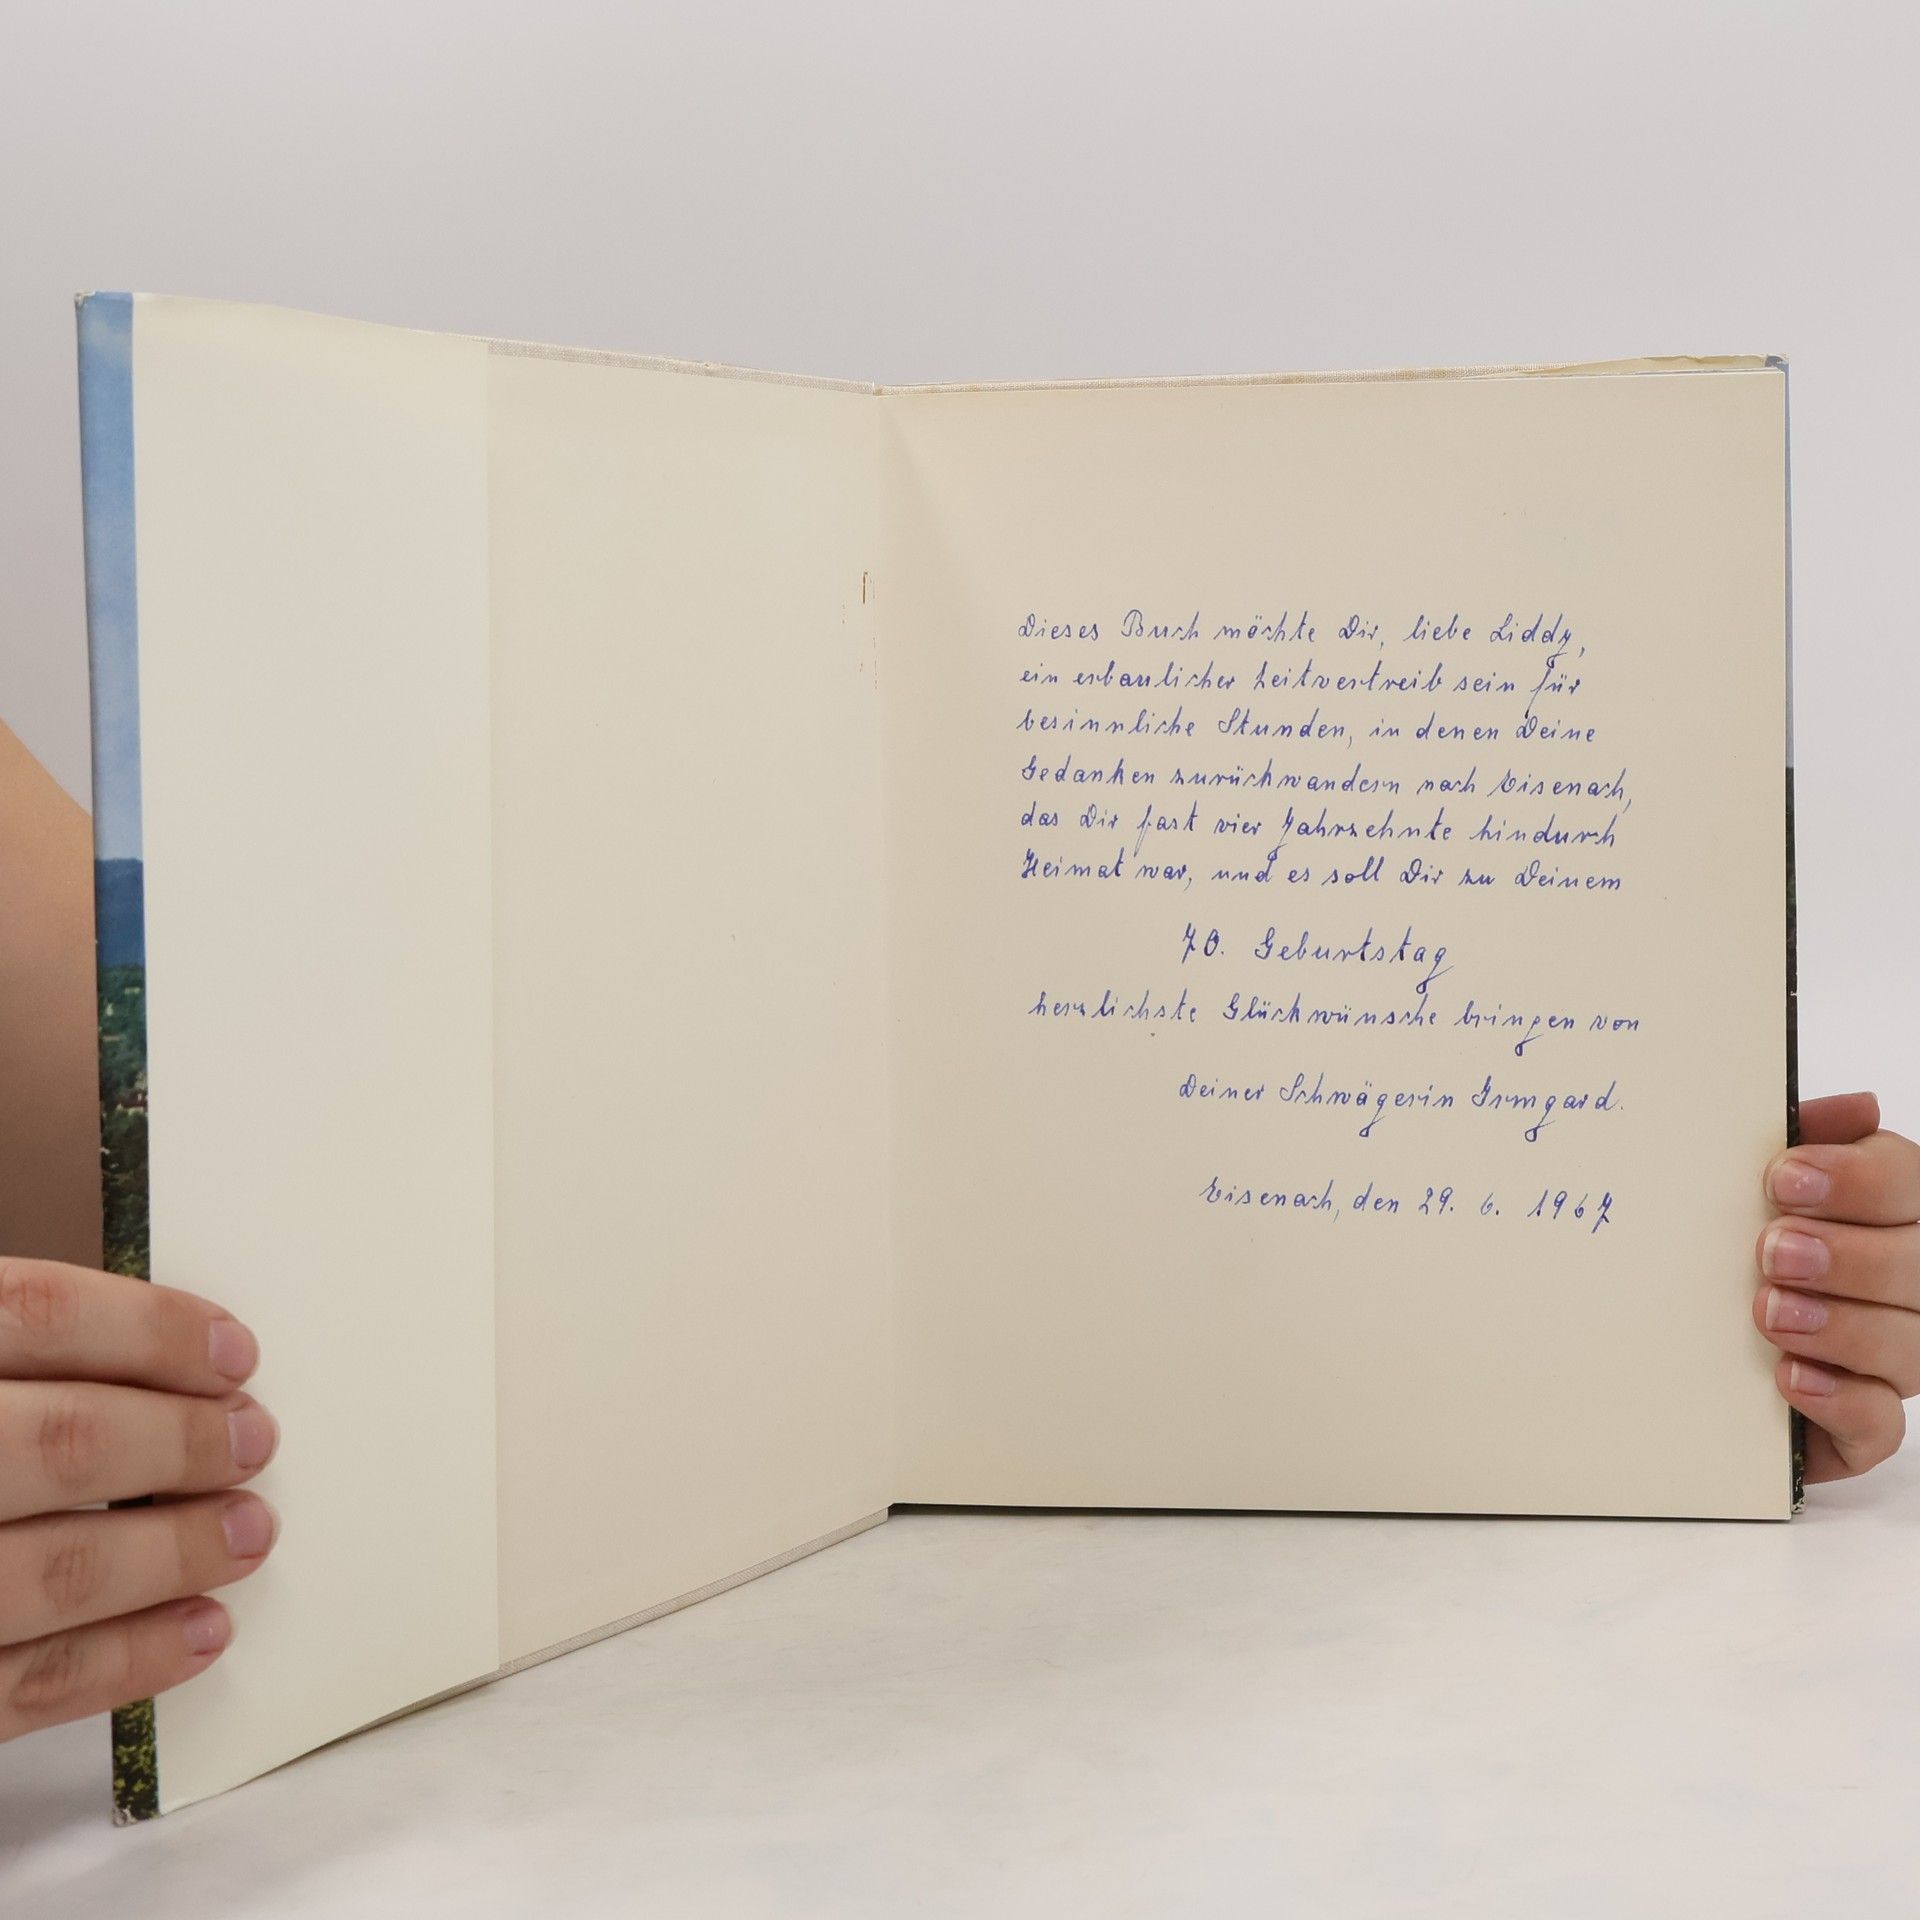 Dieses Buch möchte Dir, liebe Liddy,
ein erbaulicher Zeitvertreib sein für
besinnliche Stunden, in denen Deine
Gedanken zurückwandern nach Eisenach,
das Dir fast vier Jahrzehnte hindurch
Heimat war, und es soll Dir zu Deinem
70. Geburtstag
herzlichste Glückwünsche bringen von
Deiner Schwägerin Irmgard.
Eisenach, den 29. 6. 1967